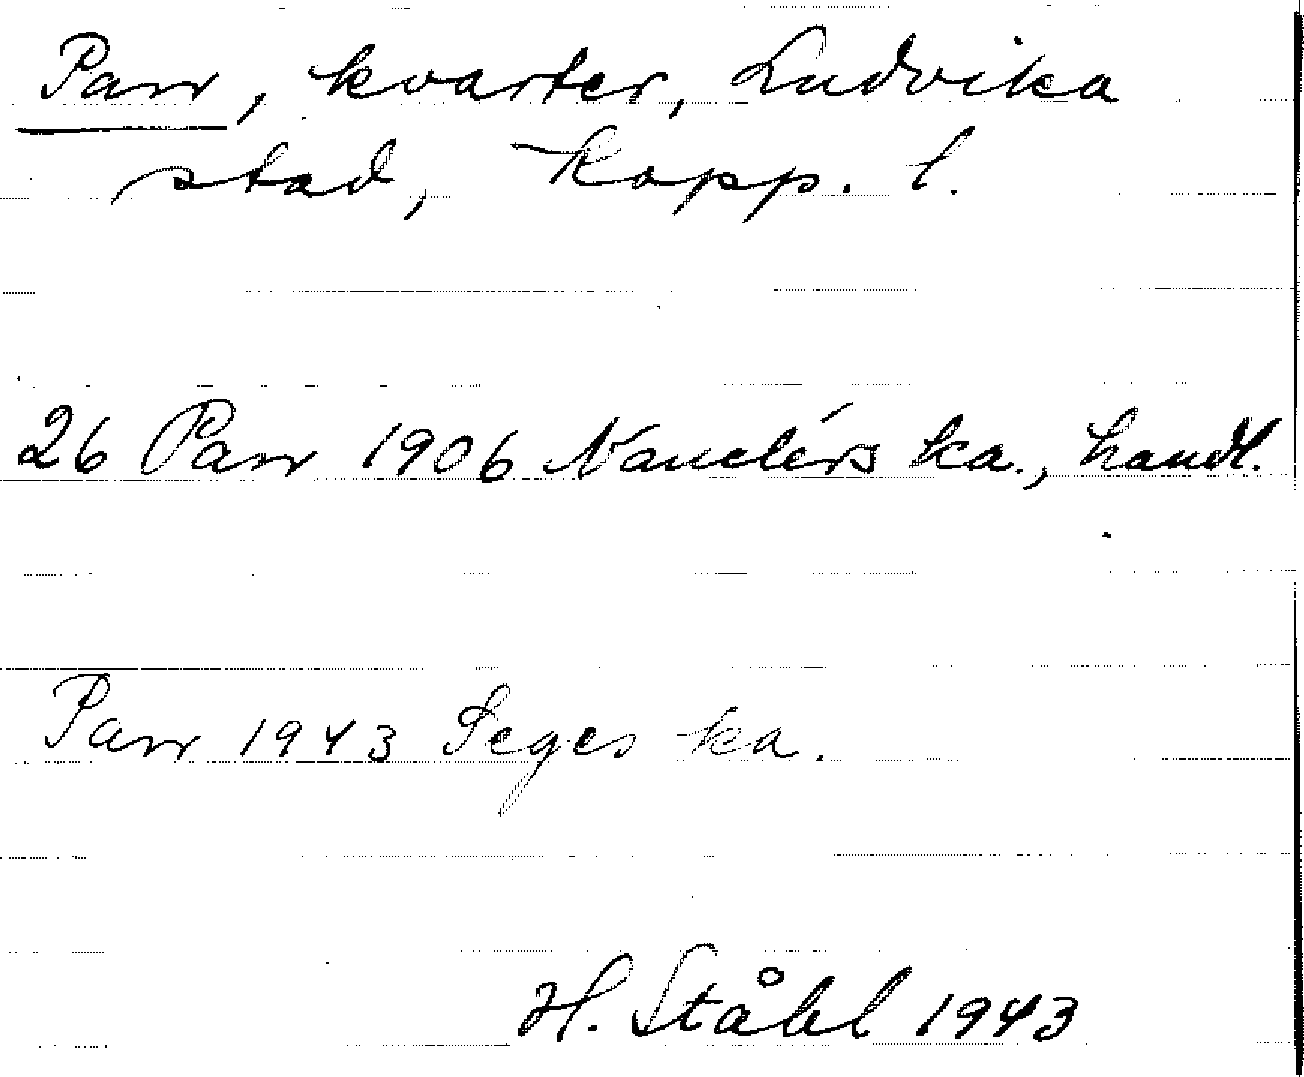 Parr, kvarter, Ludvika
stad, Kopp. l.
26 Parr 1906 Nanclérs ka., handl.
Parr 1943 Seges ka.
H. Ståhl 1943